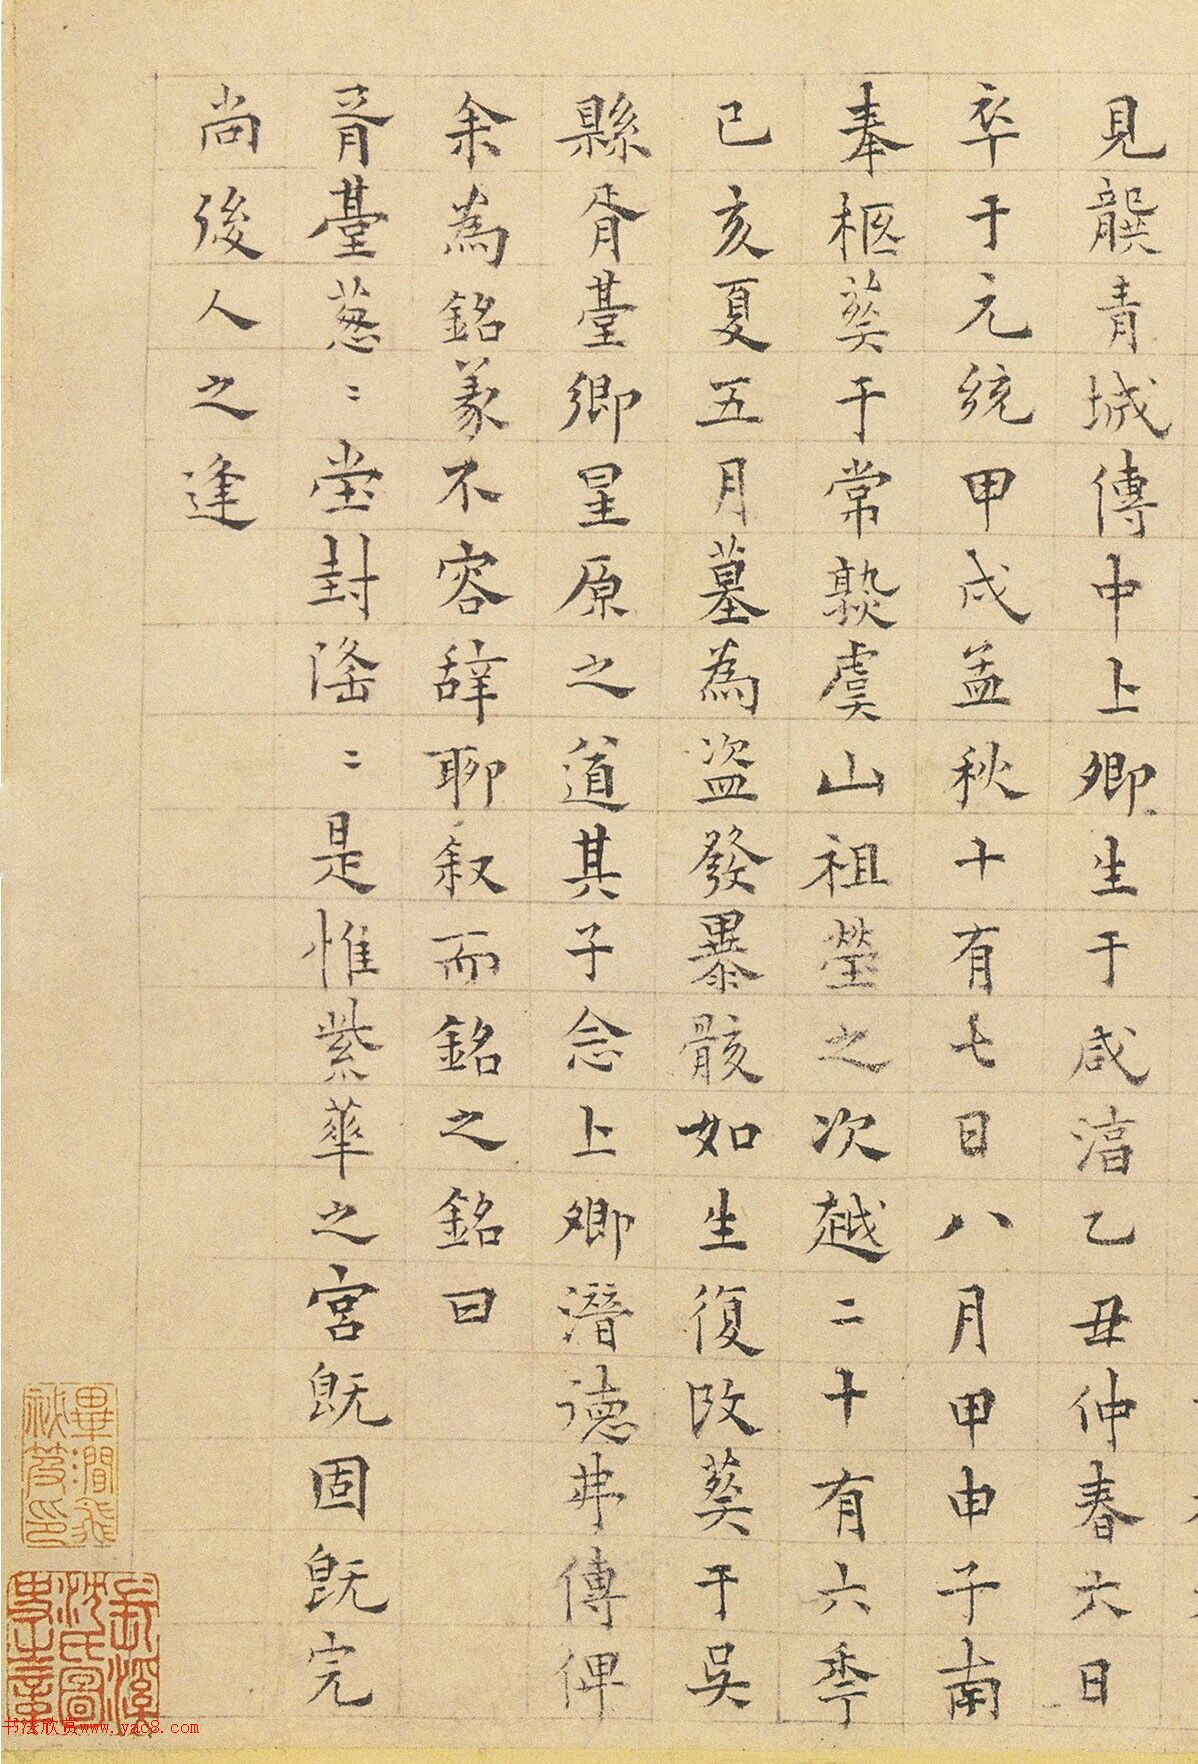 見龔青城傳中上卿生于咸淳乙丑仲春六日
卒于元統甲戌孟秋十有七日八月甲申子南
奉柩葬于常熟虞山祖塋之次越二十有六季
已亥夏五月墓為盜發暴骸如生復改葬于吳
縣胥臺鄉星原之道其子念上卿潛德弗傳俾
余為銘篆不容辭聊叙而銘之銘曰
胥臺蔥〻堂封隆〻是惟紫華之宮既固既完
尚後人之逢
書法欣赏www.yac8.com